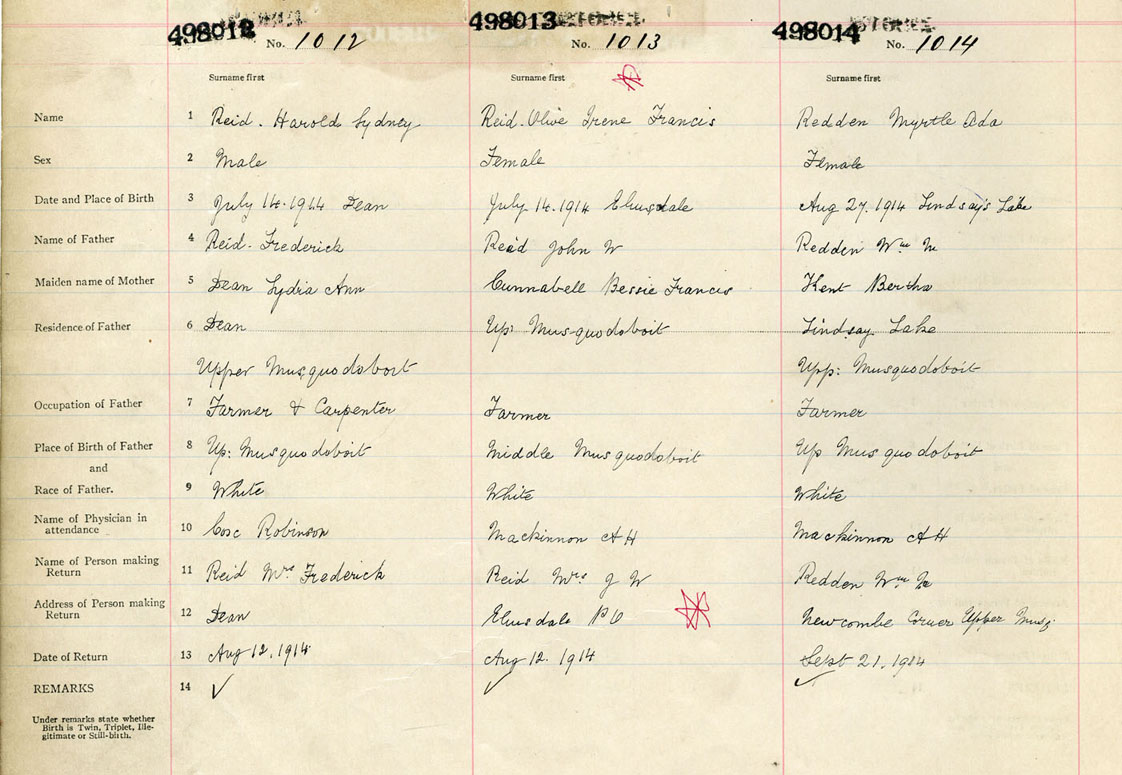 498012 498013 498014
No. 1012 No. 1013 No. 1014
Surname first Surname first Surname first
Name 1 Reid. Harold Sydney Reid. Olive Irene Francis Redden Myrtle Ada
Sex 2 Male Female Female
Date and Place of Birth 3 July 14. 1914 Dean July. 14. 1914 Elmsdale Aug 27. 1914 Lindsay's Lake
Name of Father 4 Reid. Frederick Reid John W Redden Wm
Maiden name of Mother 5 Dean Lydia Ann Cunnabell Bessie Francis Kent Bertha
Residence of Father 6 Dean Up: Musquodoboit Lindsay Lake
Upper Musquodoboit Upp: Musquodoboit
Occupation of Father 7 Farmer & Carpenter Farmer Farmer
Place of Birth of Father 8 Up: Musquodoboit Middle Musquodoboit Up Musquodoboit
and
Race of Father. 9 White White White
Name of Physician in
attendance 10 Robinson Mackinnon A H Mackinnon A H
Name of Person making
Return 11 Reid Mrs Frederick Reid Mrs J W Redden Wm
Address of Person making
Return 12 Dean Elmsdale P O Newcombe Corner Upper Musq:
Date of Return 13 Aug 12. 1914 Aug 12. 1914 Sept 21. 1914
REMARKS 14 ✓ ✓ ✓
Under remarks state whether
Birth is Twin, Triplet, Ille-
gitimate or Still-birth.